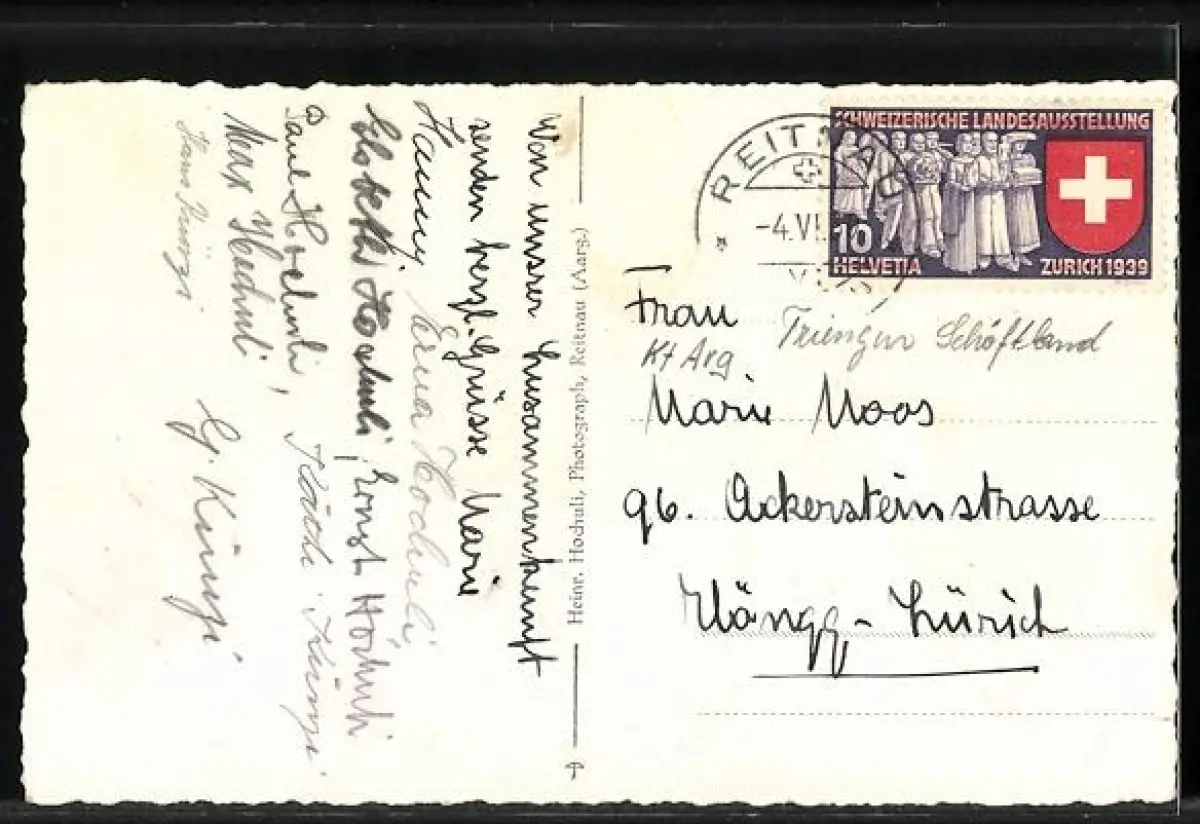 Von unsrer Zusammenkunft
senden herzl. Grüsse Marie
Hanny Erna Hochuli,
Hochuli, Ernst Hochuli
Paul Hochuli, Käthi Künzi
Max Hochuli G. Künzi
Hans Künzi
Heinr. Hochuli, Photograph, Reitnau (Aarg.)
REITNAU
-4.VI.
SCHWEIZERISCHE LANDESAUSSTELLUNG
10
HELVETIA ZURICH 1939
Frau Triengen Schöftland
Kt Arg
Marie Moos
96. Ackersteinstrasse
Höngg - Zürich